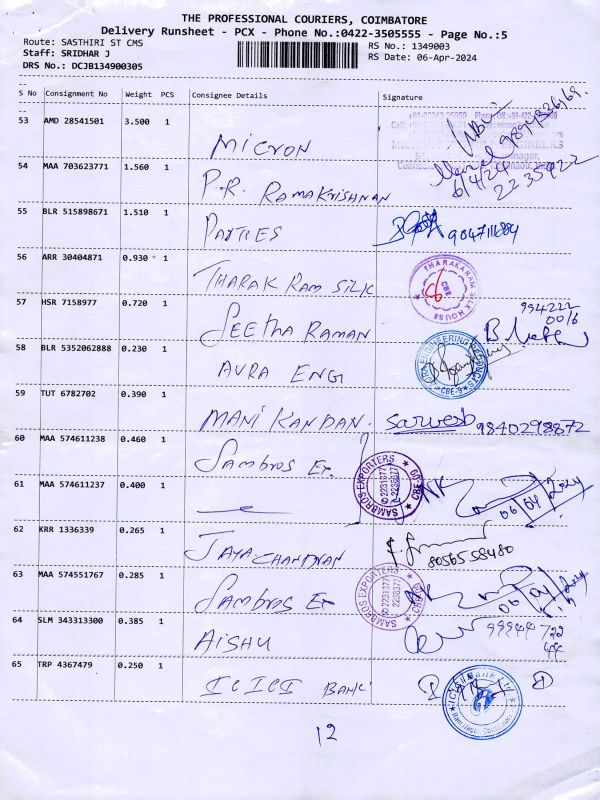 THE PROFESSIONAL COURIERS, COIMBATORE
Delivery Runsheet - PCX - Phone No.:0422-3505555 - Page No.:5
Route: SASTHIRI ST CMS
Staff: SRIDHAR J
DRS No.: DCJB134900305
RS No.: 1349003
RS Date: 06-Apr-2024
S No Consignment No Weight PCS Consignee Details Signature
53 AMD 28541501 3.500 1 MICRON
6/4/24
54 MAA 703623771 1.560 1 P.R. RAMAKRISHNAN
55 BLR 515898671 1.510 1 PARTIES
56 ARR 30404871 0.930 1 THARAK RAM SILK
THARAKARAM SILK HOUSE CBE
57 HSR 7158977 0.720 1 SEETHA RAMAN
994222
00/6
58 BLR 5352062888 0.230 1 AVRA ENG
CBE-9
59 TUT 6782702 0.390 1 MANIKANDAN. Sarvesh 9840298872
60 MAA 574611238 0.460 1 Sambros Ex.
SAMBROS EXPORTERS CBE-09
61 MAA 574611237 0.400 1
06/04/2024
62 KRR 1336339 0.265 1 JAYACHANDRAN 8056558480
63 MAA 574551767 0.285 1 Sambros Ex
SAMBROS EXPORTERS
64 SLM 343313300 0.385 1 AISHU
99944 722
44
65 TRP 4367479 0.250 1 ICICI BANK
ICICI Bank Ltd
12